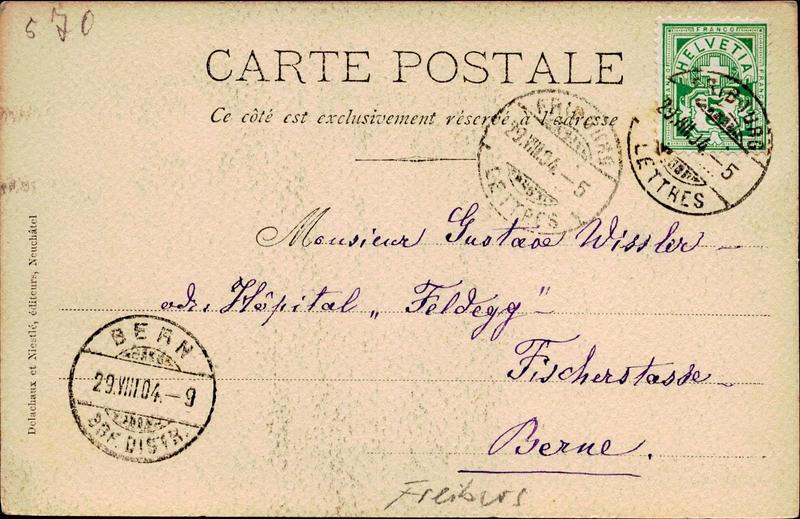 570
CARTE POSTALE
Ce côté est exclusivement réservé à l'adresse
FRANCO
HELVETIA
FRIBOURG
29.VIII.04.-5
LETTRES
FRIBOURG
29.VIII.04.-5
LETTRES
Monsieur Gustave Wissler
Hôpital „Feldegg"
Fischerstasse
Berne.
BERN
29.VIII.04.-9
BRF. DISTR.
Delachaux et Niestlé, éditeurs, Neuchâtel
Freiburg